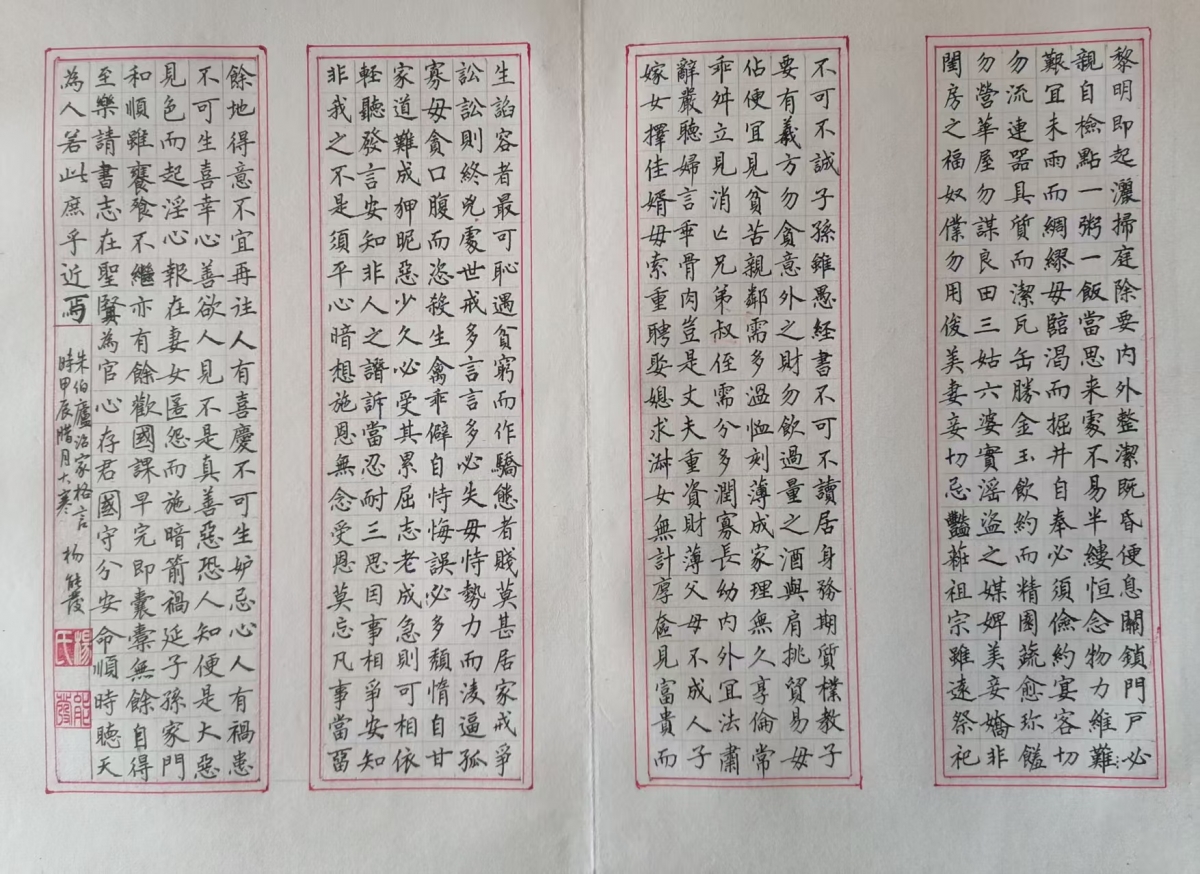 黎明即起灑掃庭除要内外整潔既昏便息關鎖門戸必
親自檢點一粥一飯當思来處不易半縷恒念物力維難
艱宜未雨而綢繆毋臨渴而掘井自奉必須儉約宴客切
勿流連器具質而潔瓦缶勝金玉飲約而精園蔬愈珎饈
勿營華屋勿謀良田三姑六婆實滛盜之媒婢美妾嬌非
閨房之福奴僕勿用俊美妻妾切忌豔粧祖宗雖遠祭祀
不可不誠子孫雖愚經書不可不讀居身務期質樸教子
要有義方勿貪意外之財勿飲過量之酒與肩挑貿易毋
佔便宜見貧苦親鄰需多温恤刻薄成家理無久享倫常
乖舛立見消亡兄弟叔侄需分多潤寡長幼内外宜法肅
辭嚴聽婦言乖骨肉豈是丈夫重資財薄父母不成人子
嫁女擇佳婿毋索重聘娶媳求淑女無計厚奩見富貴而
生諂容者最可恥遇貧窮而作驕態者賤莫甚居家戒爭
訟訟則終凶處世戒多言言多必失毋恃勢力而凌逼孤
寡毋貪口腹而恣殺生禽乖僻自恃悔誤必多頽惰自甘
家道難成狎昵惡少久必受其累屈志老成急則可相依
輕聽發言安知非人之譖訴當忍耐三思因事相爭安知
非我之不是須平心暗想施恩無念受恩莫忘凡事當留
餘地得意不宜再往人有喜慶不可生妒忌心人有禍患
不可生喜幸心善欲人見不是真善惡恐人知便是大惡
見色而起淫心報在妻女匿怨而施暗箭禍延子孫家門
和順雖饔飧不繼亦有餘歡國課早完即囊橐無餘自得
至樂請書志在聖賢為官心存君國守分安命順時聽天
為人若此庶乎近焉
朱伯廬治家格言
時甲辰腊月大寒 楊能發
楊氏
能發